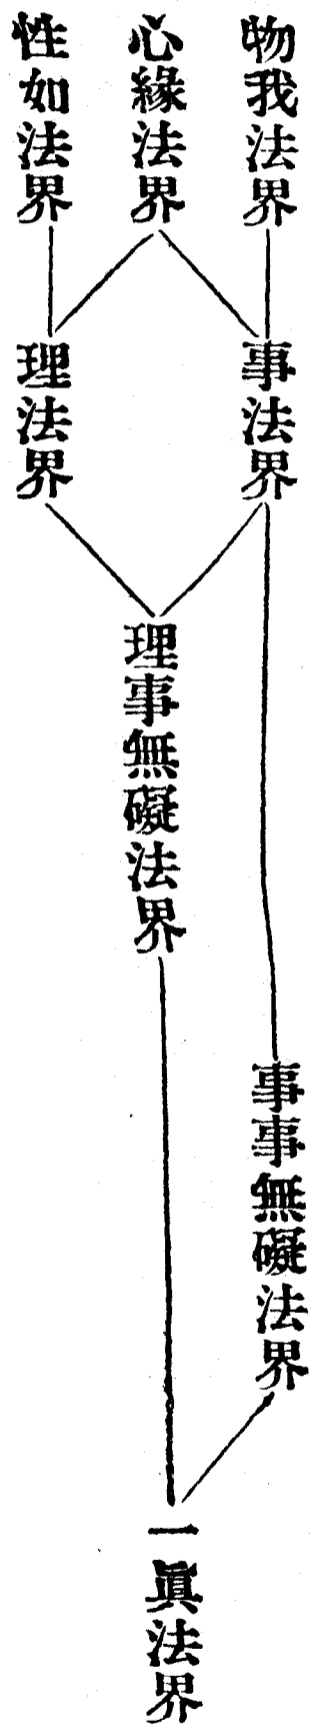 物我法界
心緣法界
性如法界
事法界
理法界
理事無礙法界
事事無礙法界
一眞法界